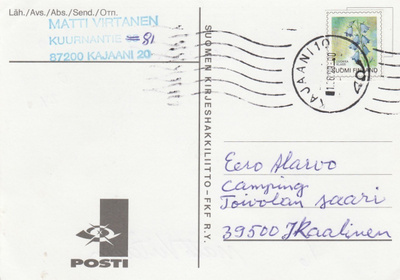 Läh./Avs./Abs./Send./Отп.
MATTI VIRTANEN
KUURNANTIE 81
87200 KAJAANI 20
SUOMEN KIRJESHAKKILIITTO-FKF R.Y.
KAJAANI 10
SUOMI FINLAND
Eero Alarvo
Camping
Toivolan saari
39500 IKaalinen
POSTI